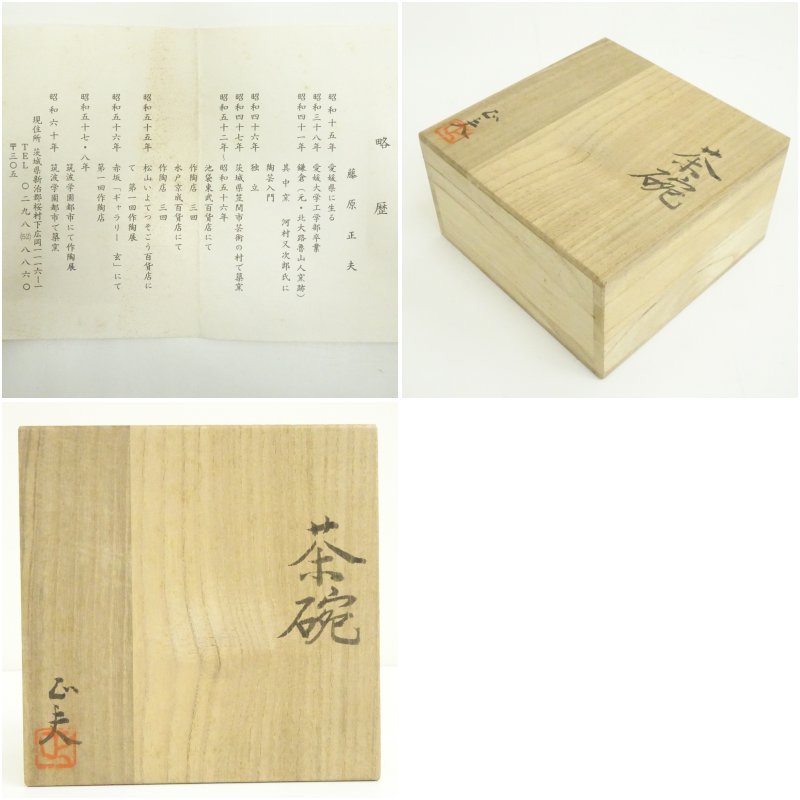 略歴
藤原正夫
昭和十五年 愛媛県に生る
昭和三十八年 愛媛大学工学部卒業
昭和四十一年 鎌倉(元・北大路魯山人窯跡)
其中窯 河村又次郎氏に
陶芸入門
昭和四十六年 独立
昭和四十七年 茨城県笠間市芸術の村で築窯
昭和五十二年~昭和五十六年
池袋東武百貨店にて
作陶店 三回
水戸京成百貨店にて
作陶店 三回
昭和五十五年 松山いよてつそごう百貨店に
て 第一回作陶展
昭和五十六年 赤坂「ギャラリー 玄」にて
第一回作陶店
昭和五十七・八年
筑波学園都市にて作陶展
昭和六十年 筑波学園都市で築窯
現住所 茨城県新治郡桜村下広岡一一一六-一
TEL 〇二九八㈤八八六〇
〒三〇五
茶碗
正夫
茶碗
正夫